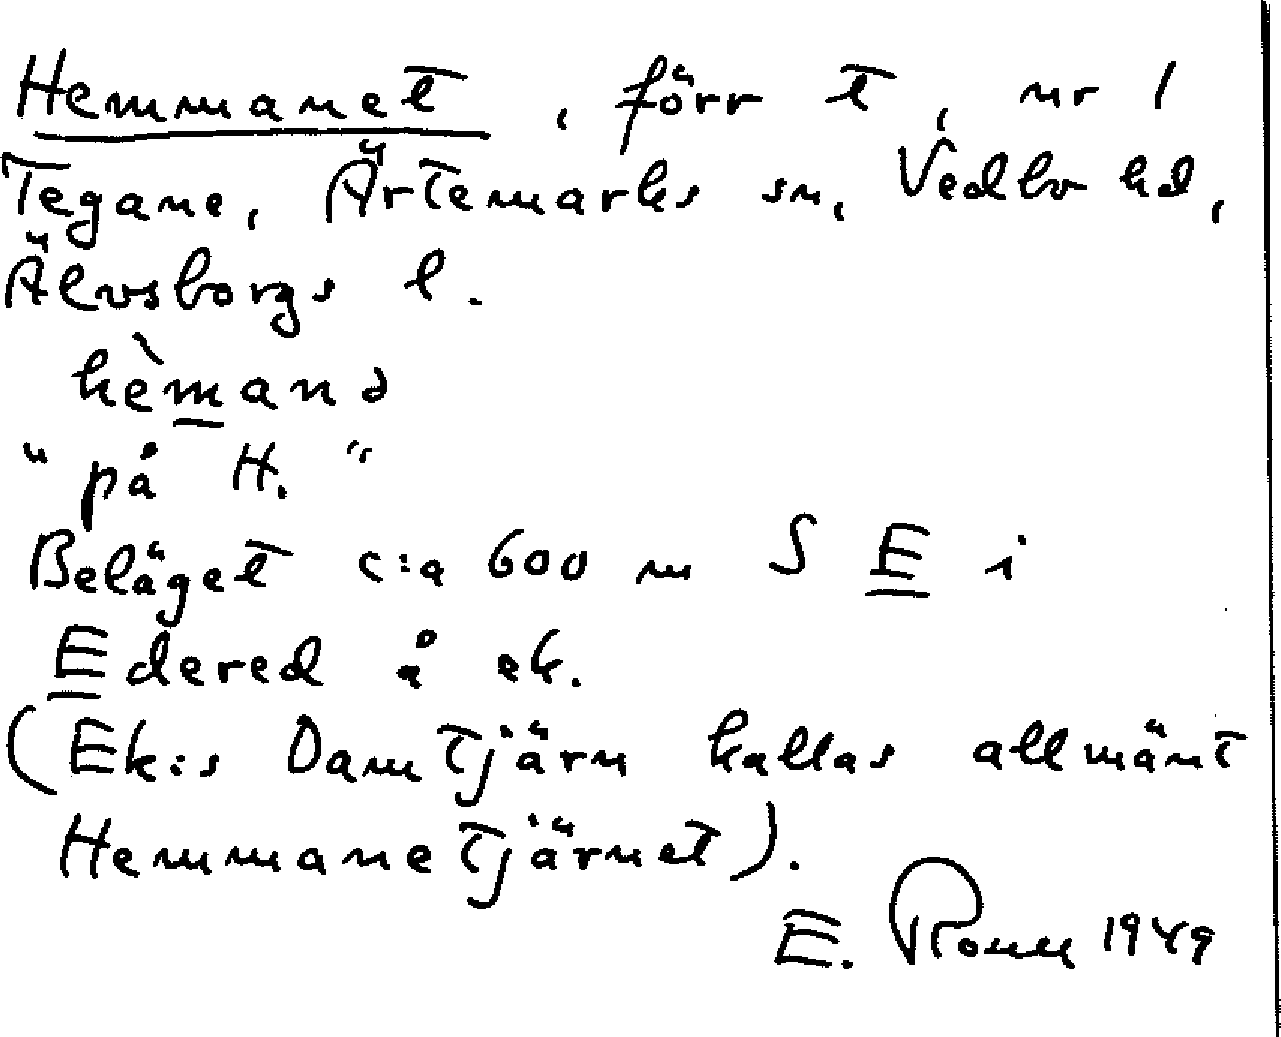 Hemmanet, förr t, nr 1
Tegane, Ärtemarks sn, Vedbo hd,
Älvsborgs l.
hèmanə
"på H."
Beläget c:a 600 m S E i
Edered å ek.
(Ek:s Damtjärn kallas allmänt
Hemmanetjärnet).
E. 1949